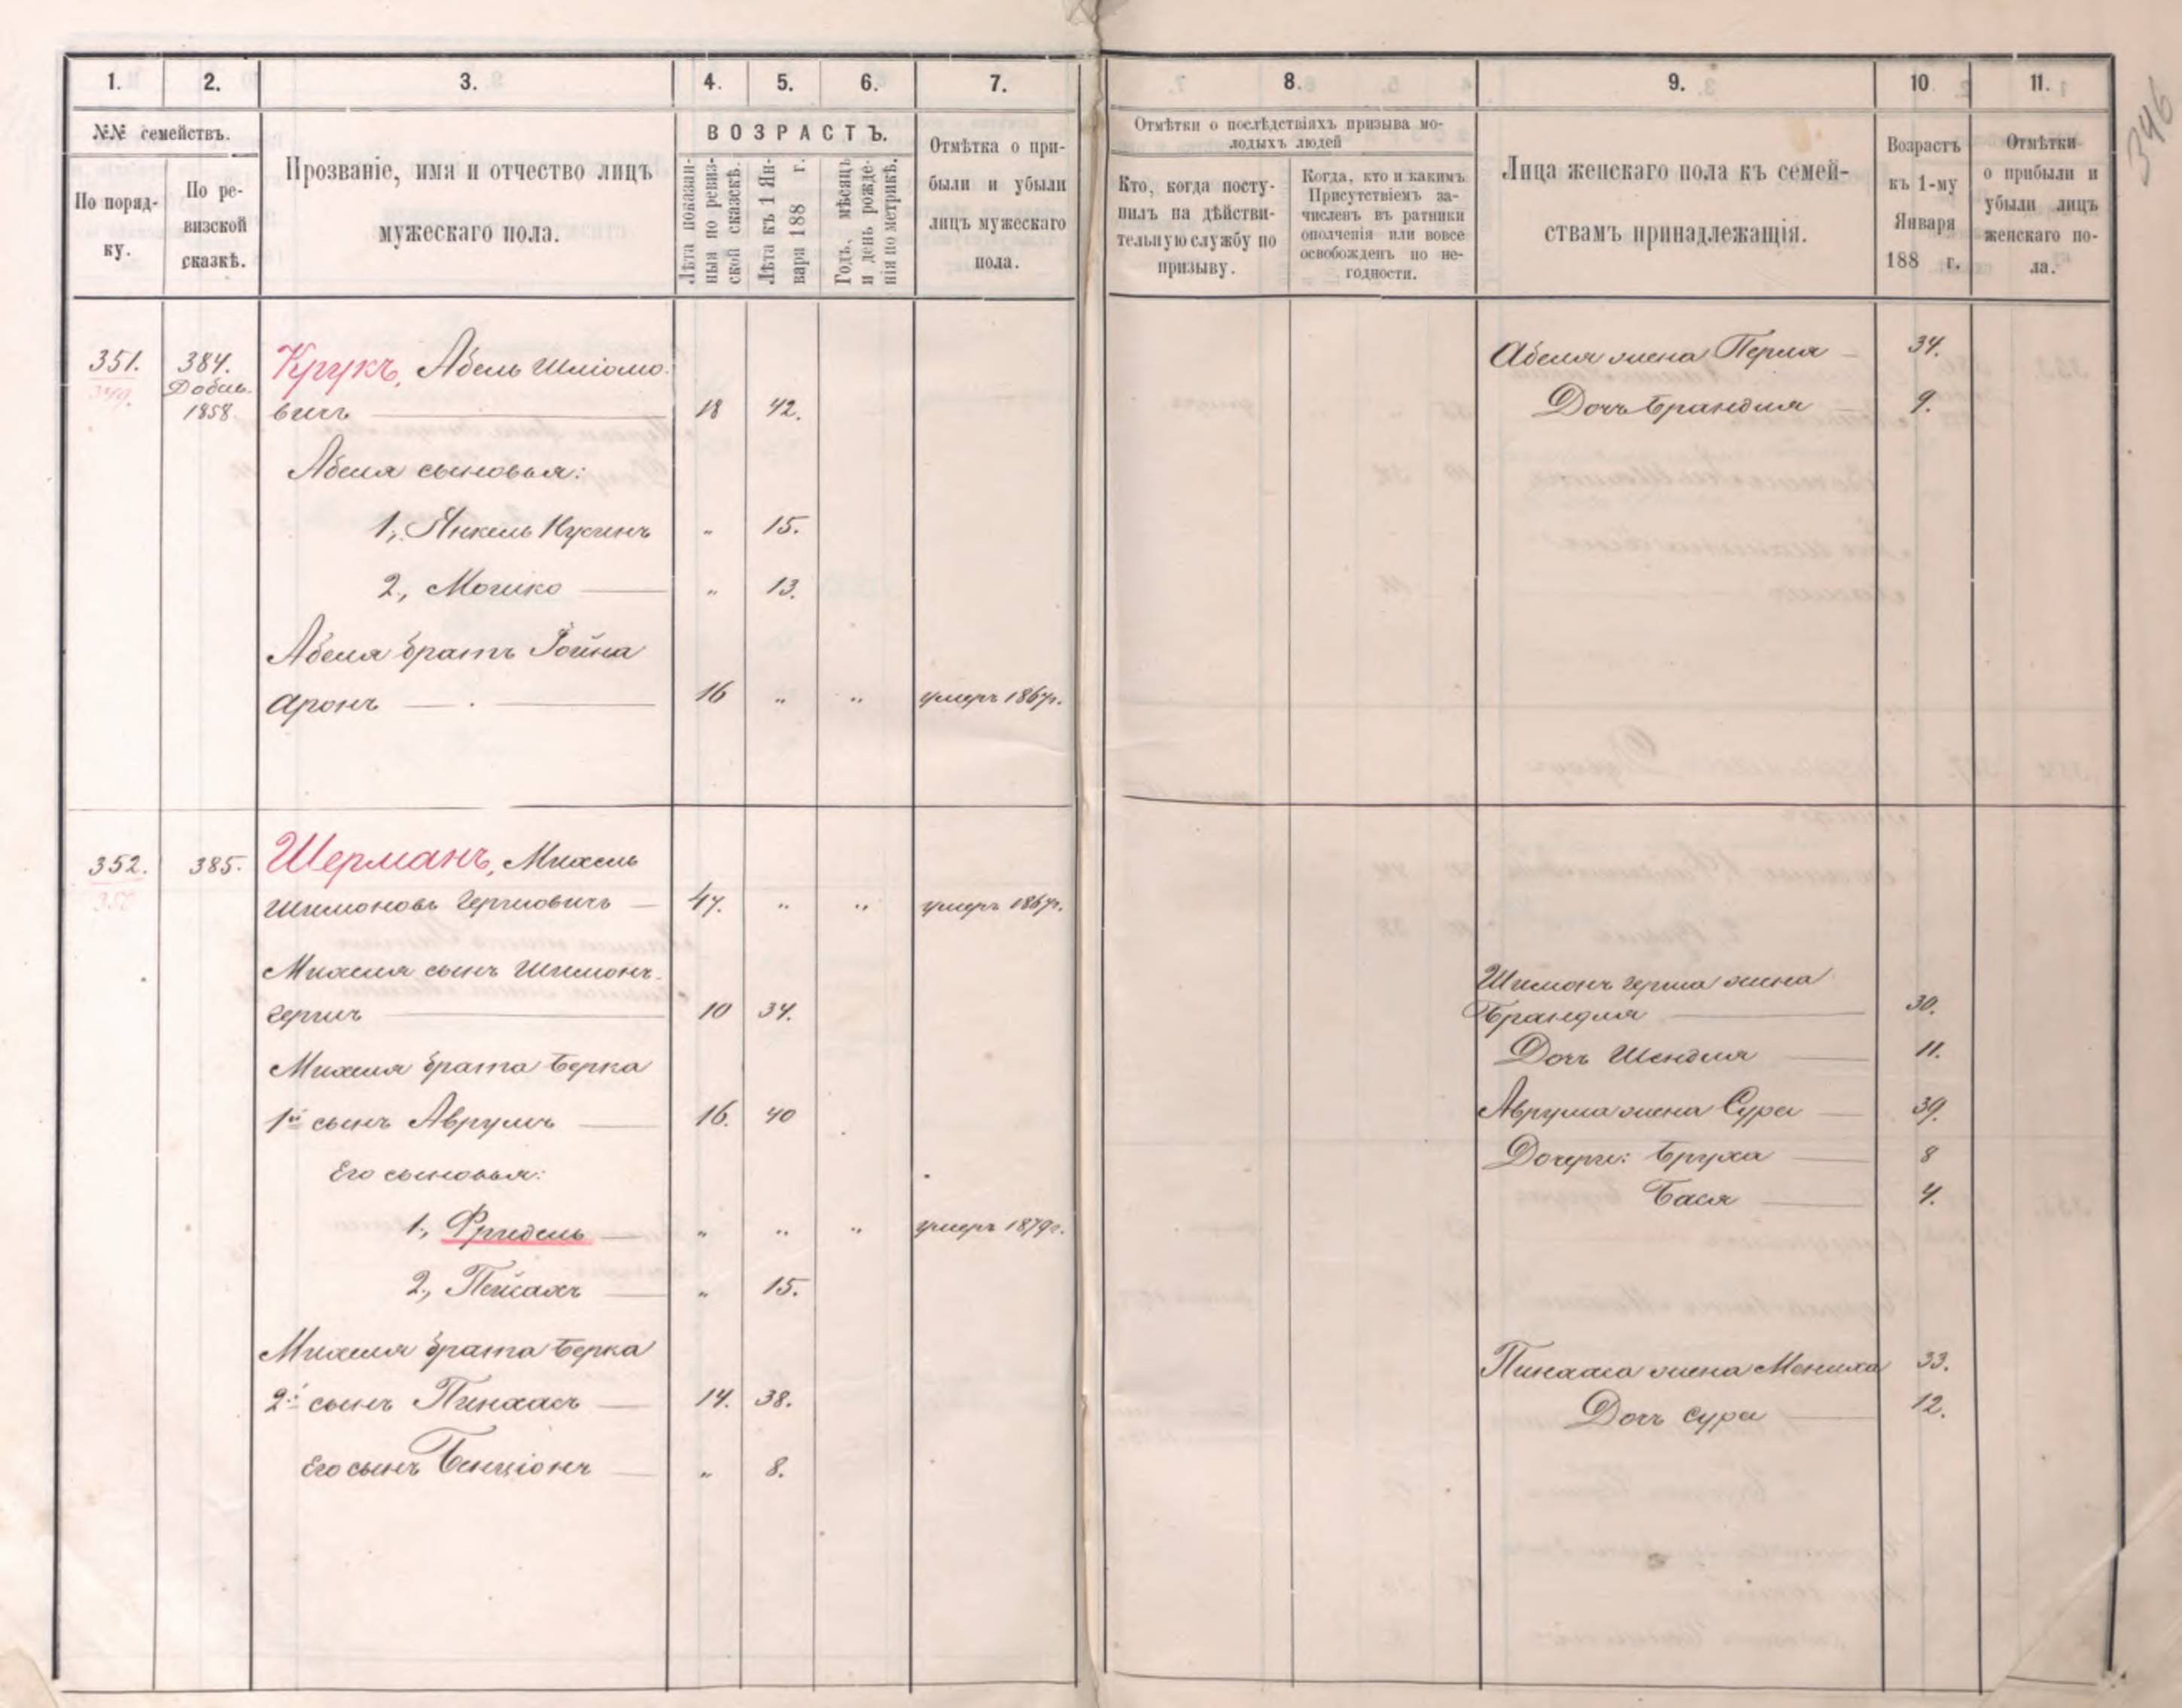 1.
2.
3.
4.
5.
6.
7.
8.
9.
10
11.
№№ семействъ.
По поряд-
ку.
По ре-
визской
сказкѣ.
Прозваніе, имя и отчество лицъ
мужескаго пола.
ВОЗРАСТЪ.
Лѣта показан-
ныя по ревиз-
ской сказкѣ.
Лѣта къ 1 Ян-
варя 188 г.
Годъ, мѣсяцъ
и день рожде-
нія по метрикѣ.
Отмѣтка о при-
были и убыли
лицъ мужескаго
пола.
Отмѣтки о послѣдствіяхъ призыва мо-
лодыхъ людей
Кто, когда посту-
пилъ на дѣйстви-
тельную службу по
призыву.
Когда, кто и какимъ
Присутствіемъ за-
численъ въ ратники
ополченія или вовсе
освобожденъ по не-
годности.
Лица женскаго пола къ семей-
ствамъ принадлежащія.
Возрастъ
къ 1-му
Января
188 г.
Отмѣтки
о прибыли и
убыли лицъ
женскаго по-
ла.
346
351. 384. Крукъ, Абель Шліомо-
349. Добав.
1858. вичъ 18 42.
Абеля сыновья:
1, Янкель Нусинъ " 15.
2, Мошко " 13.
Абеля братъ Іойна
Аронъ 16 " " умеръ 1867г.
Абеля жена Перля 34.
Дочь Брандля 9.
352. 385. Шерманъ, Михель
350
Шимоновъ Гершовичъ 47. " " умеръ 1867г.
Михеля сынъ Шимонъ-
Гершъ 10 34.
Михеля брата Берка
1й сынъ Аврумъ 16. 40
Его сыновья:
1, Фридель " " " умеръ 1879г.
2, Пейсахъ " 15.
Михеля брата Берка
2й сынъ Пинхасъ 14. 38.
Его сынъ Бенціонъ " 8.
Шимонъ Герша жена
Брандля 30.
Дочь Шендля 11.
Аврума жена Сура 39.
Дочери: Бруха 8
Бася 4.
Пинхаса жена Мениха 33.
Дочь Сура 12.